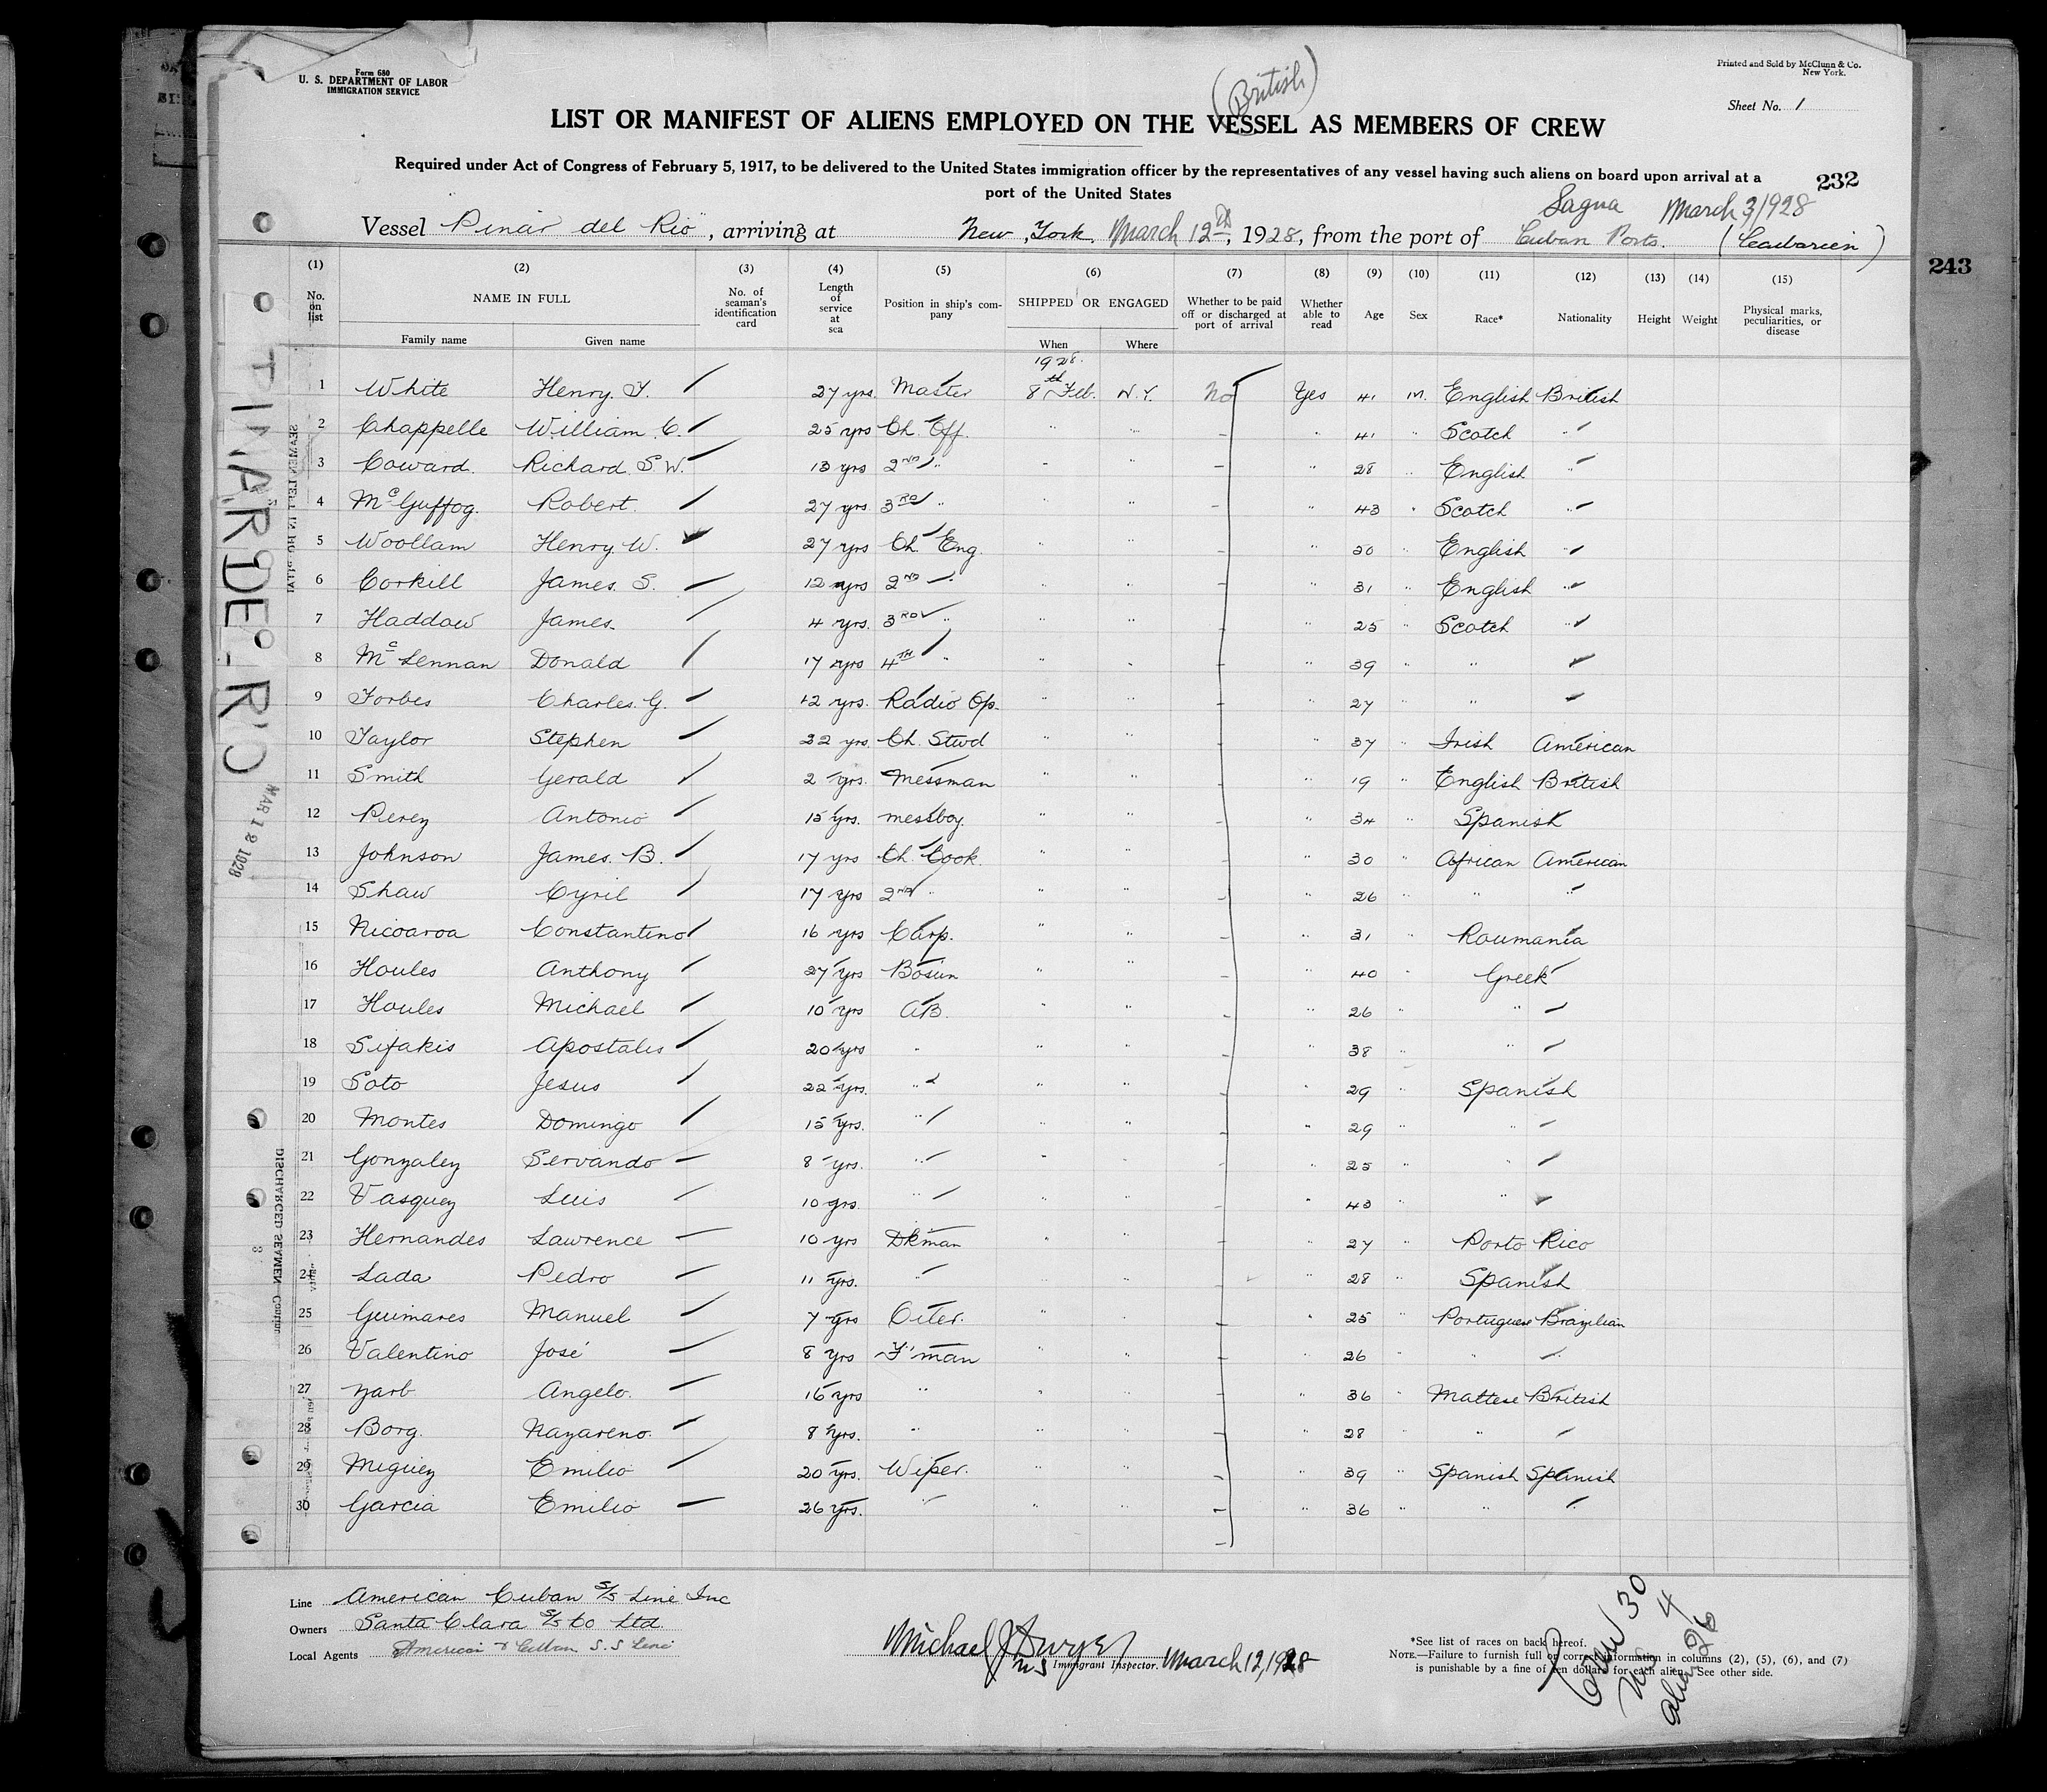 Form 680
U. S. DEPARTMENT OF LABOR
IMMIGRATION SERVICE
Printed and Sold by McClunn & Co.
New York.
Sheet No. 1
(British)
LIST OR MANIFEST OF ALIENS EMPLOYED ON THE VESSEL AS MEMBERS OF CREW
Required under Act of Congress of February 5, 1917, to be delivered to the United States immigration officer by the representatives of any vessel having such aliens on board upon arrival at a
port of the United States
232
243
Sagua March 3/1928
Vessel Pinar del Rio, arriving at New York, March 12th, 1928, from the port of Cuban Ports. (Caibarien)
(1) (2) (3) (4) (5) (6) (7) (8) (9) (10) (11) (12) (13) (14) (15)
No. on list NAME IN FULL No. of seaman's identification card Length of service at sea Position in ship's company SHIPPED OR ENGAGED Whether to be paid off or discharged at port of arrival Whether able to read Age Sex Race* Nationality Height Weight Physical marks, peculiarities, or disease
Family name Given name When Where
1928.
1 White Henry. T. 27 yrs. Master 8th Feb. N.Y. No Yes 41 M. English British
2 Chappelle William. C. 25 yrs Ch. Off. " " " 41 " Scotch "
3 Coward. Richard. S.W. 13 yrs 2ND " " " " 28 " English "
4 McGuffog. Robert. 27 yrs. 3RD " " " " 43 " Scotch "
5 Woollam Henry. W. 27 yrs Ch. Eng. " " " 50 " English "
6 Corkill James. S. 12 yrs 2ND " " " " 31 " English "
7 Haddow James. 4 yrs. 3RD " " " " 25 " Scotch "
8 McLennan Donald 17 yrs 4TH " " " " 39 " " "
9 Forbes Charles. G. 12 yrs. Radio Op. " " " 27 " " "
10 Taylor Stephen 22 yrs. Ch. Stwd " " " 37 " Irish American
11 Smith Gerald 2 yrs. Messman " " " 19 " English British
12 Perez Antonio 15 yrs. messboy. " " " 34 " Spanish
13 Johnson James. B. 17 yrs Ch. Cook. " " " 30 " African American
14 Shaw Cyril 17 yrs 2ND " " " " 26 " " "
15 Nicoaroa Constantino 16 yrs Carp. " " " 31 " Roumania
16 Houles Anthony 27 yrs Bosun " " " 40 " Greek
17 Houles Michael 10 yrs AB. " " " 26 " "
18 Sifakis Apostalis 20 yrs " " " " 38 " "
19 Soto Jesus 22 yrs. " " " " 29 " Spanish
20 Montes Domingo 15 yrs. " " " " 29 " "
21 Gonzalez Servando 8 yrs. " " " " 25 " "
22 Vasquez Luis 10 yrs. " " " " 43 " "
23 Hernandes Lawrence 10 yrs Dkman " " " 27 " Porto Rico
24 Lada Pedro 11 yrs. " " " " 28 " Spanish
25 Guimares Manuel 7 yrs Oiler. " " " 25 " Portuguese Brazilian
26 Valentino José 8 yrs F"man " " " 26 " " "
27 Zarb Angelo. 15 yrs " " " " 36 " Maltese British
28 Borg. Nazareno. 8 yrs. " " " " 28 " " "
29 Miguez Emilio 20 yrs. Wiper. " " " 39 " Spanish Spanish
30 Garcia Emilio 26 yrs. " " " " 36 " " "
PINAR DEL RIO
MAR 12 1928
DISCHARGED SEAMEN
Line American Cuban S/S Line Inc
Owners Santa Clara S/S Co Ltd.
Local Agents American & Cuban S.S Line
Michael J Dwyer
Immigrant Inspector. March 12, 1928
*See list of races on back hereof.
NOTE.—Failure to furnish full or correct information in columns (2), (5), (6), and (7)
is punishable by a fine of ten dollars for each alien. See other side.
Crew 30
US 4
Alien 26